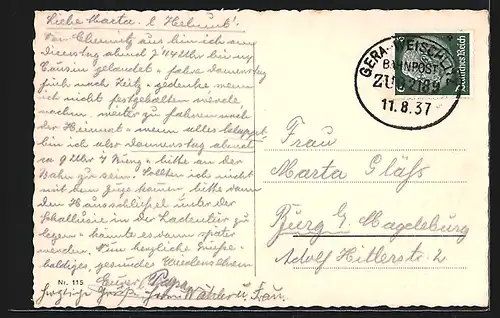 Liebe Marta & Helmut!
Von Chemnitz aus bin ich am
Dienstag abend 7 44 Uhr bei
gelandet - fahre Donnerstag
früh nach Zeitz - gedenke wenn
ich nicht festgehalten werde,
weiter zu fahren nach
der Heimat - wenn alles klappt
bin ich also Donnerstag abend
ca 9 Uhr in Burg - bitte an der
Bahn zu sein. Sollten ich nicht
mit dem Zuge kommen, bitte dann
den Hausschlüssel unter der
in der Ladentür zu
legen - könnte es dann später
werden. Nun herzliche Grüße
baldiges gesundes Wiedersehen
Euer Papa
herzliche Grüße Wähler u. Frau.
Nr. 115
GERA-WEISCHLITZ
BAHNPOST
ZUG
11.8.37
Deutsches Reich
Frau
Marta Gläß
Burg b/ Magdeburg
Adolf Hitlerstr. 2